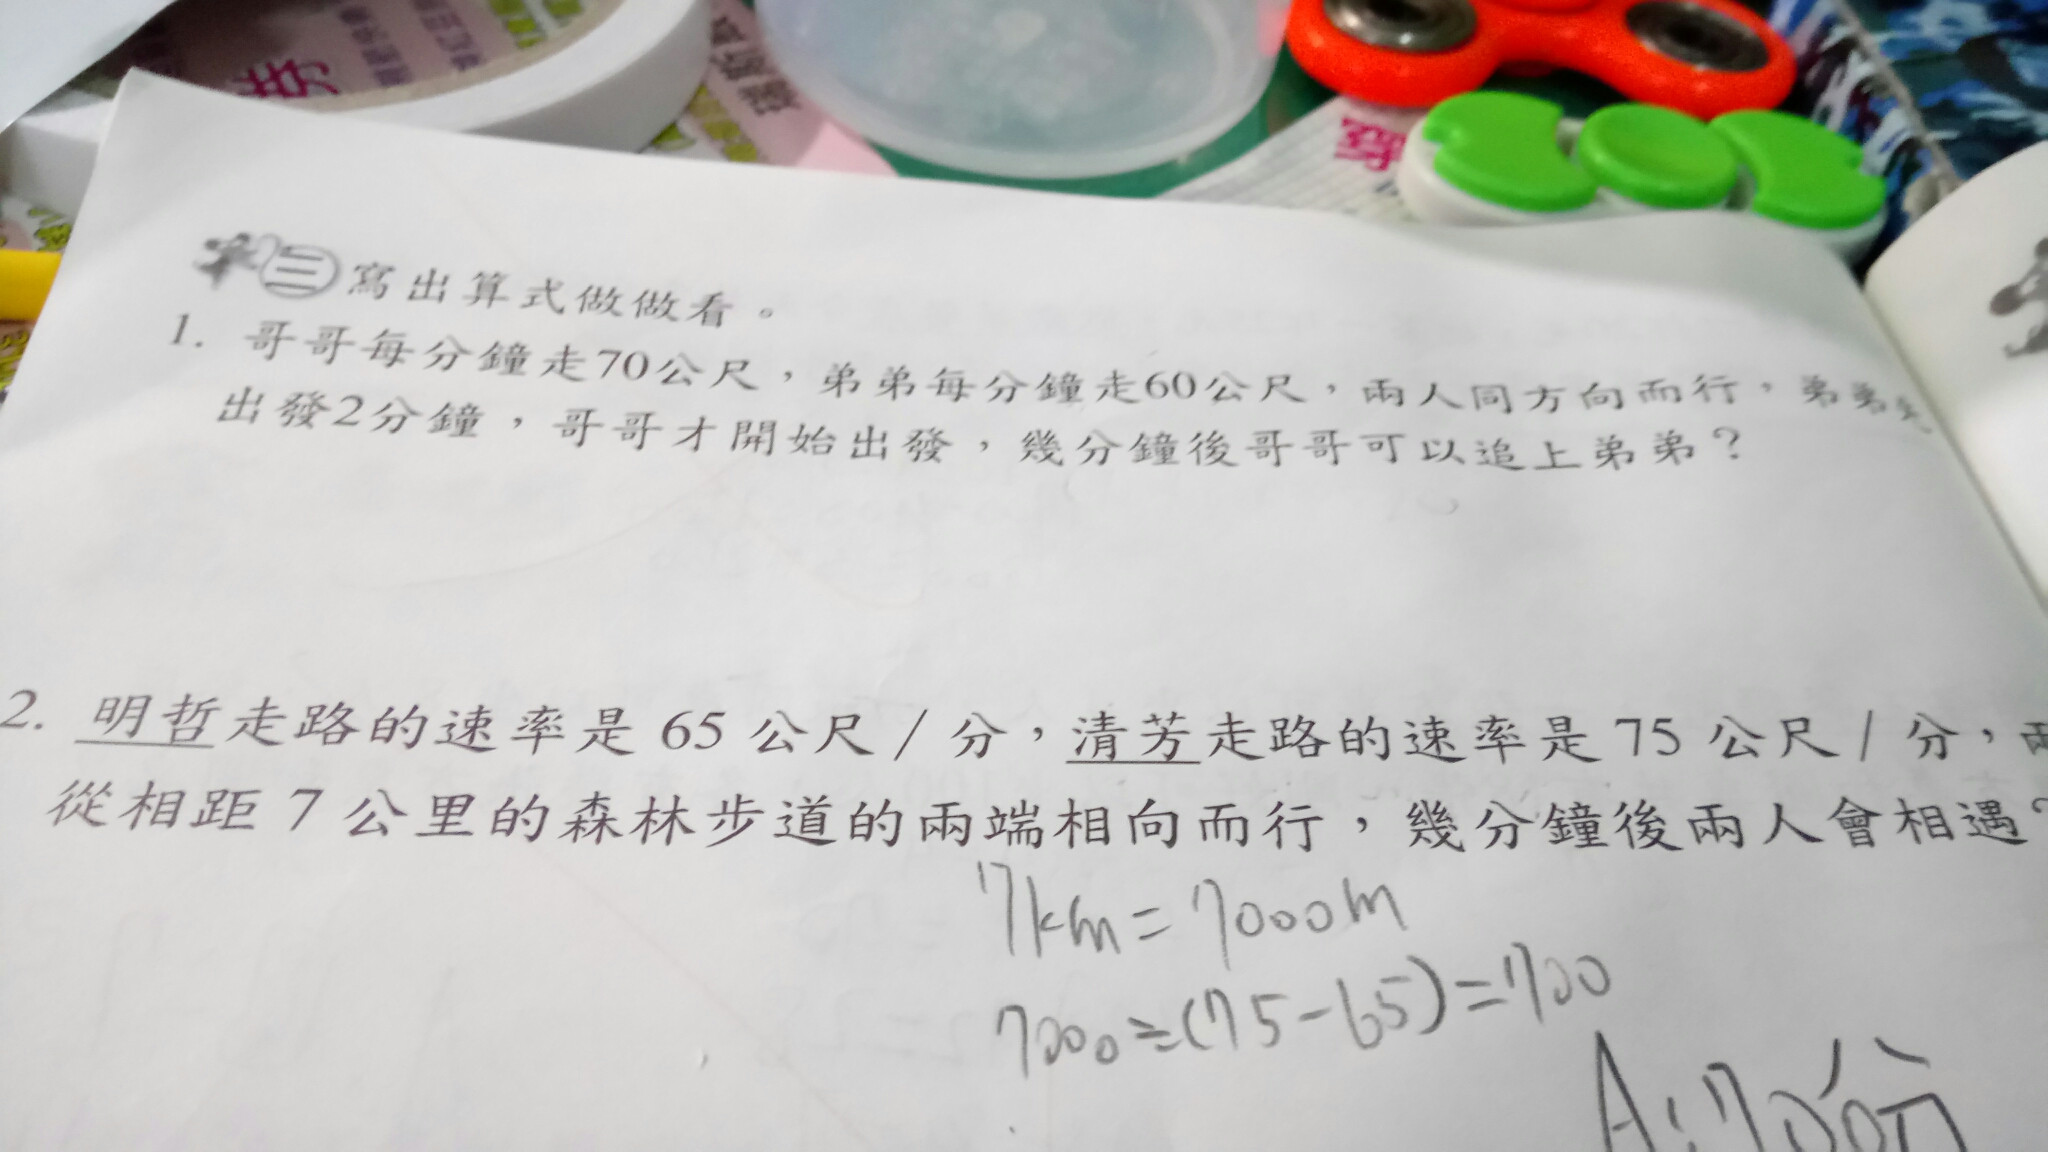 三 寫出算式做做看。
1. 哥哥每分鐘走70公尺，弟弟每分鐘走60公尺，兩人同方向而行，弟弟
出發2分鐘，哥哥才開始出發，幾分鐘後哥哥可以追上弟弟？
2. 明哲走路的速率是 65 公尺 / 分，清芳走路的速率是 75 公尺 / 分，
從相距 7 公里的森林步道的兩端相向而行，幾分鐘後兩人會相遇？
7km=7000m
7000÷(75-65)=700
A:700分